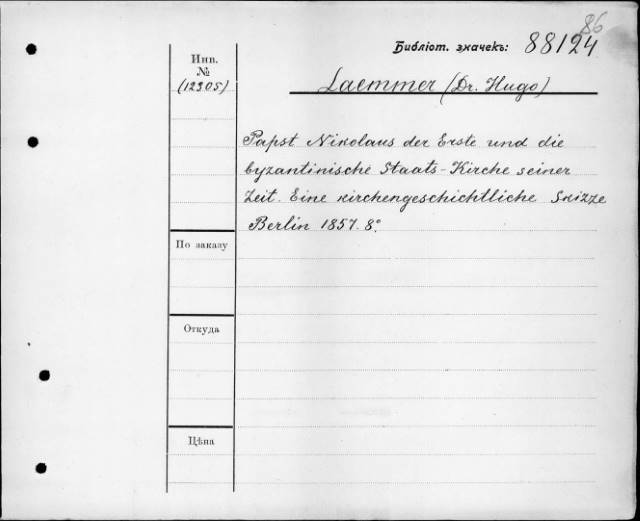 86
Библіот. значекъ: 88124
Инв.
№
(12305)
Laemmer (Dr. Hugo)
Papst Nikolaus der Erste und die
byzantinische Staats-Kirche seiner
Zeit. Eine kirchengeschichtliche Skizze
Berlin 1857. 8°.
По заказу
Откуда
Цѣна